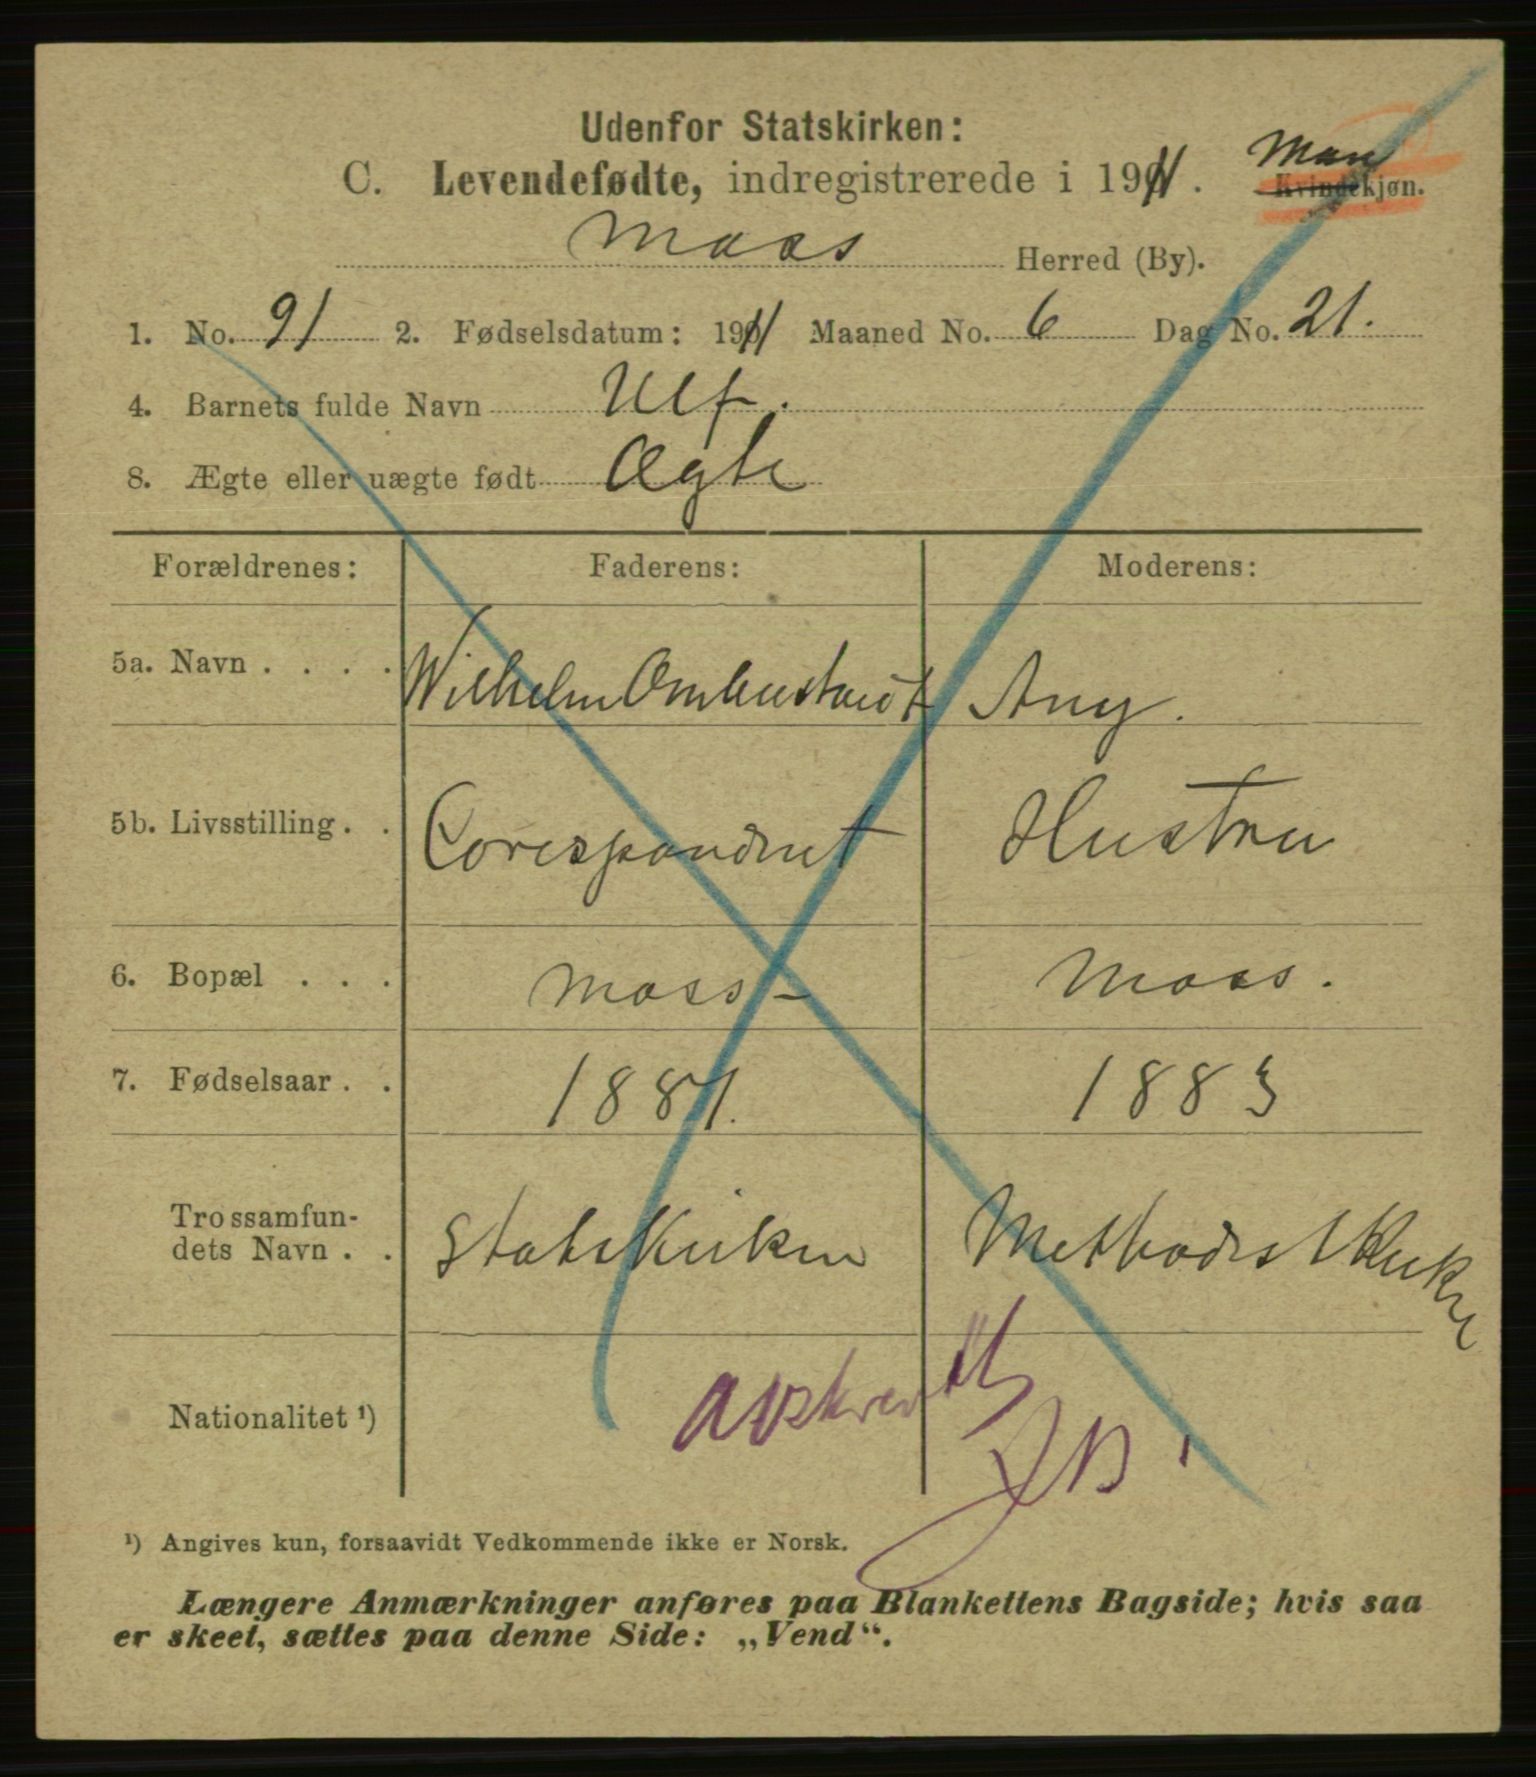 Udenfor Statskirken:
C. Levendefødte, indregistrerede i 1911. Man Kvindekjøn.
Moss Herred (By).
1. No. 91 2. Fødselsdatum: 1911 Maaned No. 6 Dag No. 21.
4. Barnets fulde Navn Ulf.
8. Ægte eller uægte født Ægte
Forældrenes: Faderens: Moderens:
5a. Navn . . . . Wilhelm Ombustvedt Any.
5b. Livsstilling . . Corespondent Hustru
6. Bopæl . . . Moss - Moss.
7. Fødselsaar . . 1881. 1883
Trossamfun-
dets Navn . . Statskirken Methodistkirken
Nationalitet ¹)
avskrevet
¹) Angives kun, forsaavidt Vedkommende ikke er Norsk.
Længere Anmærkninger anføres paa Blankettens Bagside; hvis saa
er skeet, sættes paa denne Side: „Vend“.